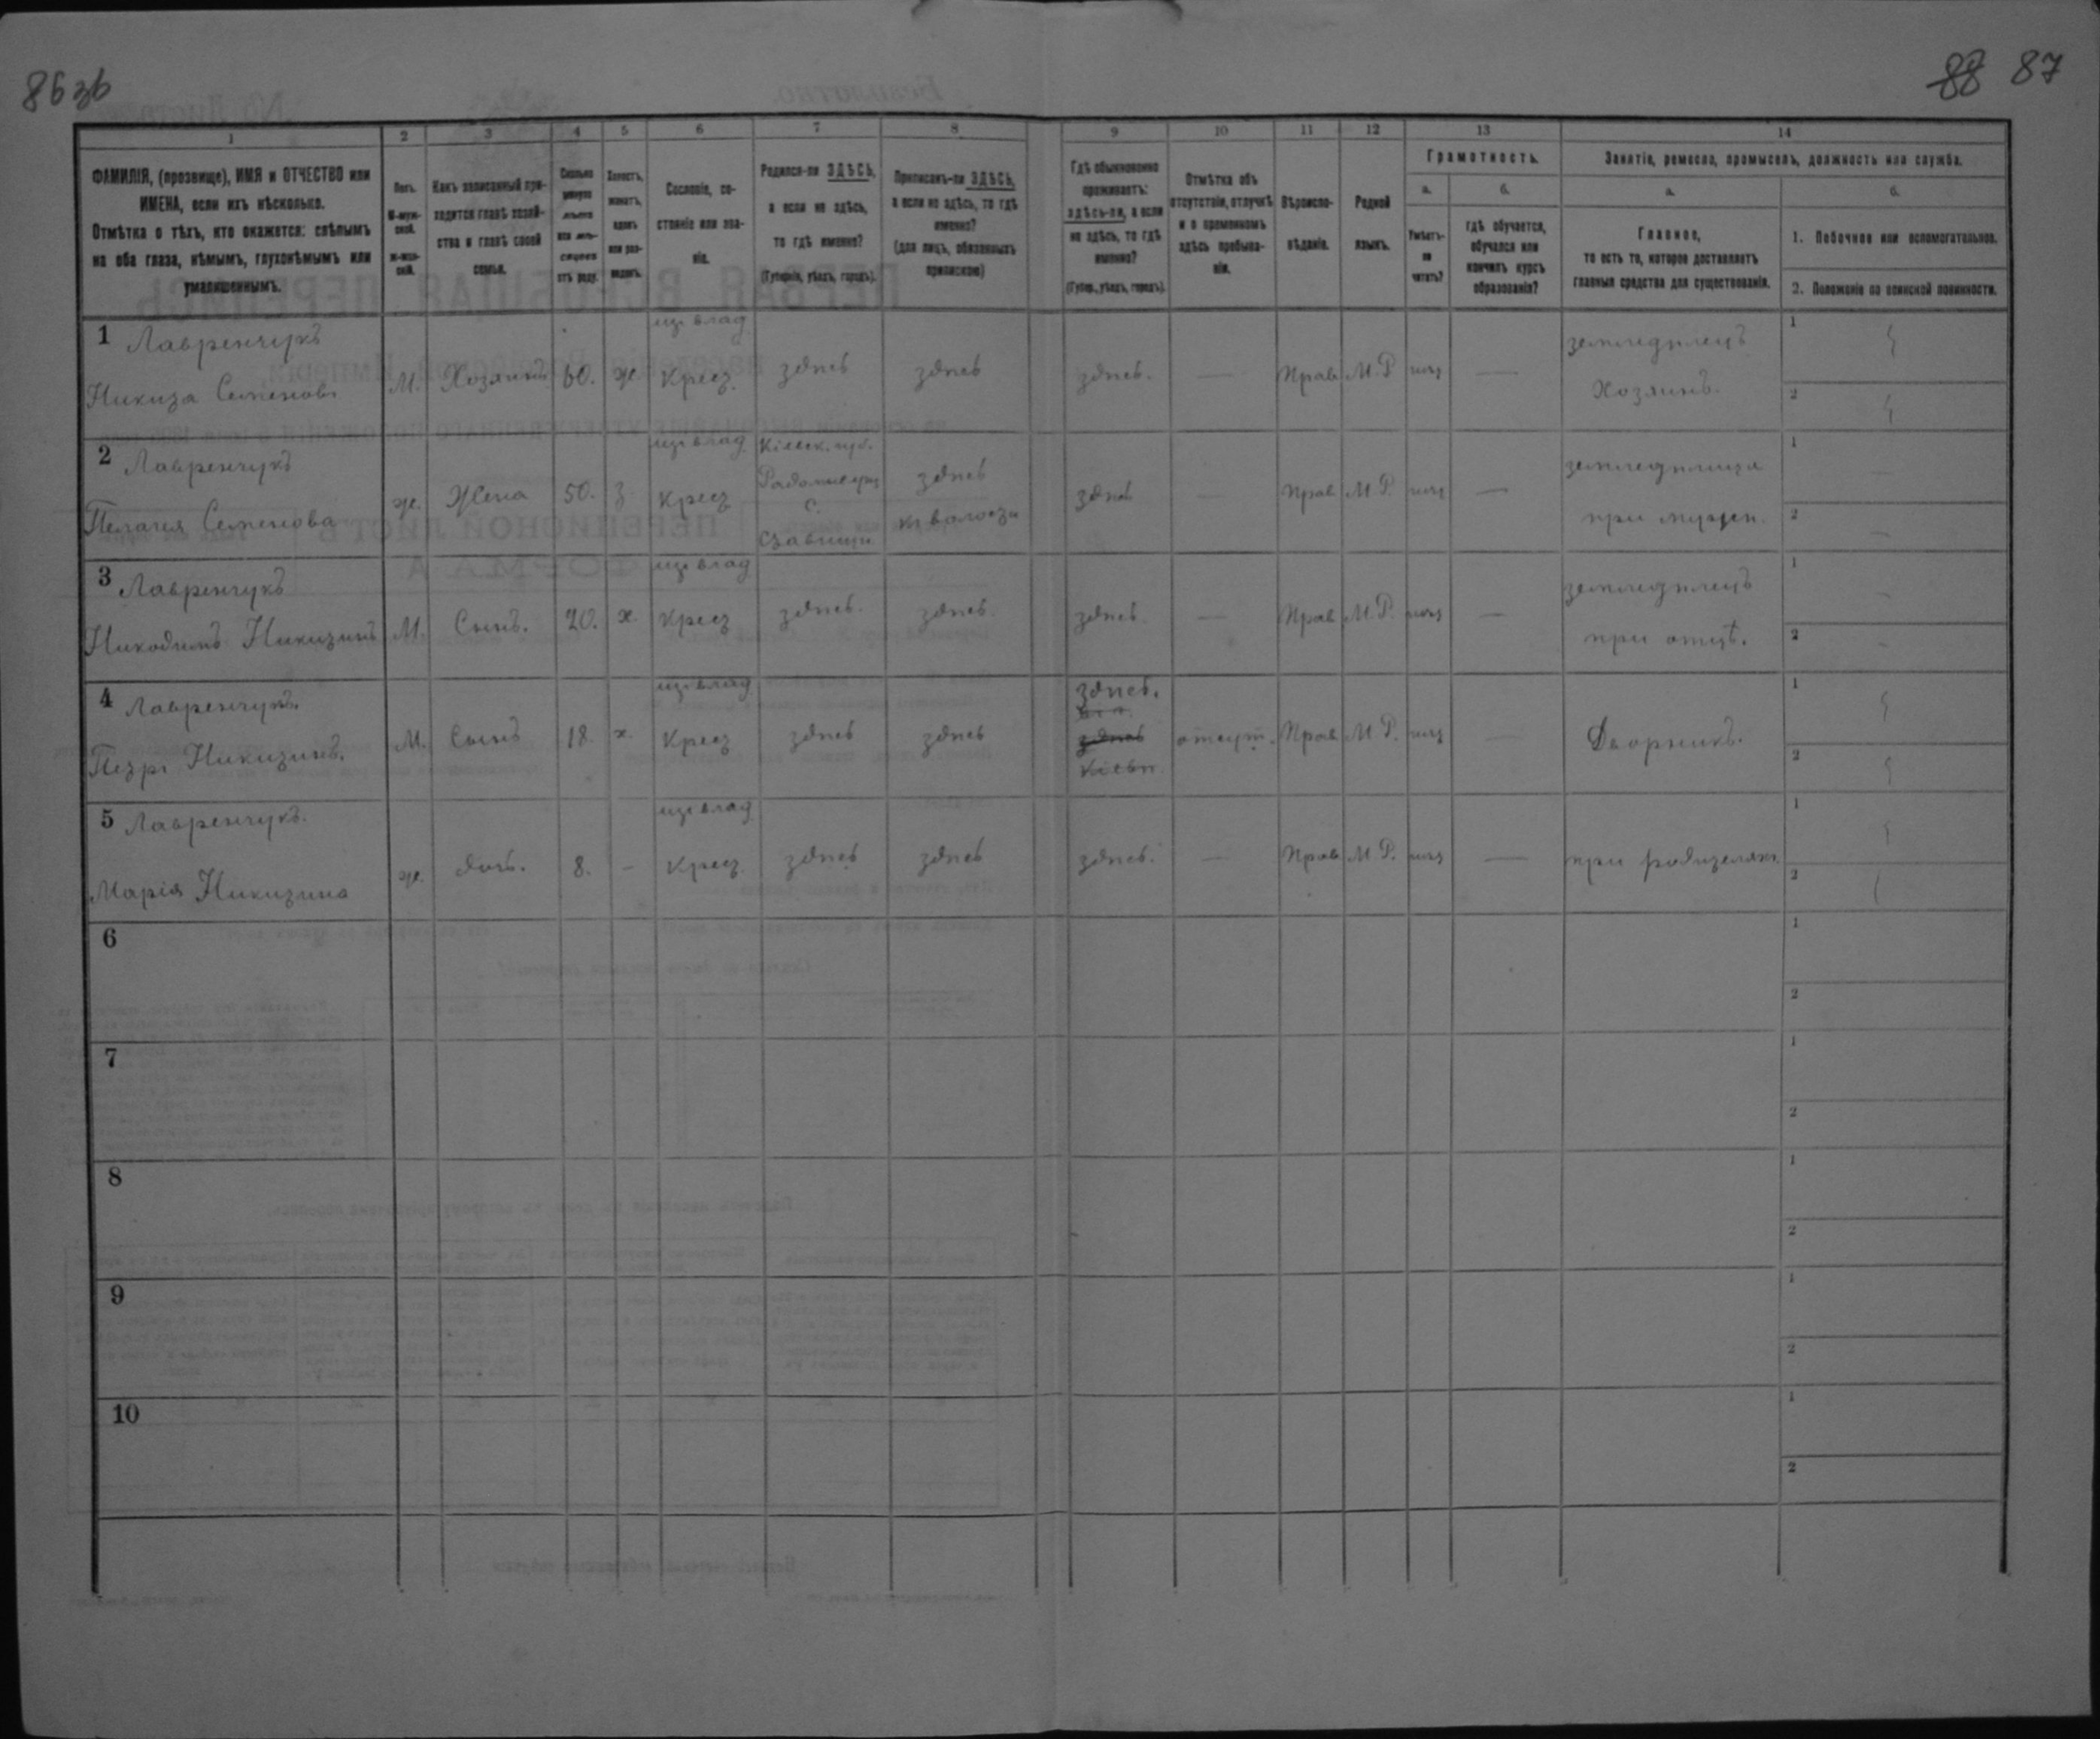 86 зв
88 87
1 2 3 4 5 6 7 8 9 10 11 12 13 14
ФАМИЛІЯ, (прозвище), ИМЯ и ОТЧЕСТВО или
ИМЕНА, если ихъ нѣсколько.
Отмѣтка о тѣхъ, кто окажется: слѣпымъ
на оба глаза, нѣмымъ, глухонѣмымъ или
умалишеннымъ.
Полъ.
М-муж-
ской.
ж-жен-
скій.
Какъ записанный при-
ходится главѣ хозяй-
ства и главѣ своей
семьи.
Сколько
минуло
лѣтъ
или мѣ-
сяцевъ
отъ роду.
Холостъ,
женатъ,
вдовъ
или раз-
веденъ.
Сословіе, со-
стояніе или зва-
ніе.
Родился-ли ЗДѢСЬ,
а если не здѣсь,
то гдѣ именно?
(Губернія, уѣздъ, городъ).
Приписанъ-ли ЗДѢСЬ,
а если не здѣсь, то гдѣ
именно?
(для лицъ, обязанныхъ
припискою)
Гдѣ обыкновенно
проживаетъ:
здѣсь-ли, а если
не здѣсь, то гдѣ
именно?
(Губер., уѣздъ, городъ).
Отмѣтка объ
отсутствіи, отлучкѣ
и о временномъ
здѣсь пребыва-
ніи.
Вѣроиспо-
вѣданіе.
Родной
языкъ.
Грамотность.
а.
Умѣетъ-
ли
читать?
б.
гдѣ обучается,
обучался или
кончилъ курсъ
образованія?
Занятіе, ремесло, промыселъ, должность или служба.
а.
Главное,
то есть то, которое доставляетъ
главныя средства для существованія.
б.
1. Побочное или вспомогательное.
2. Положеніе по воинской повинности.
1 Лавренчукъ
Никита Семеновъ
М. Хозяинъ 60. ж
Крест. здѣсь здѣсь здѣсь. — Прав М.Р нѣт —
земледѣлецъ
Хозяинъ.
1
2
2 Лавренчукъ
Пелагея Семенова
ж. Жена 50. з
Крест
Кіевск. губ.
Радомыс у
с.
Ставищи
здѣсь
къ волости
здѣсь — Прав М.Р. нѣт —
земледѣлица
при мужѣ.
1 —
2 —
3 Лавренчукъ
Никодимъ Никитинъ
М. Сынъ. 20. х.
Крест здѣсь. здѣсь. здѣсь. — Прав М.Р. нѣт —
земледѣлецъ
при отцѣ.
1 -
2 -
4 Лавренчукъ.
Петръ Никитинъ.
М. Сынъ 18. х.
Крест здѣсь здѣсь
здѣсь.
здѣсь
Кіевъ
отсут. Прав М.Р. нѣт —
Дворникъ.
1
2
5 Лавренчукъ.
Марія Никитина
ж. дочь. 8. -
Крест. здѣсь здѣсь здѣсь. — Прав М.Р. нѣт —
при родителях.
1
2
6
1
2
7
1
2
8
1
2
9
1
2
10
1
2